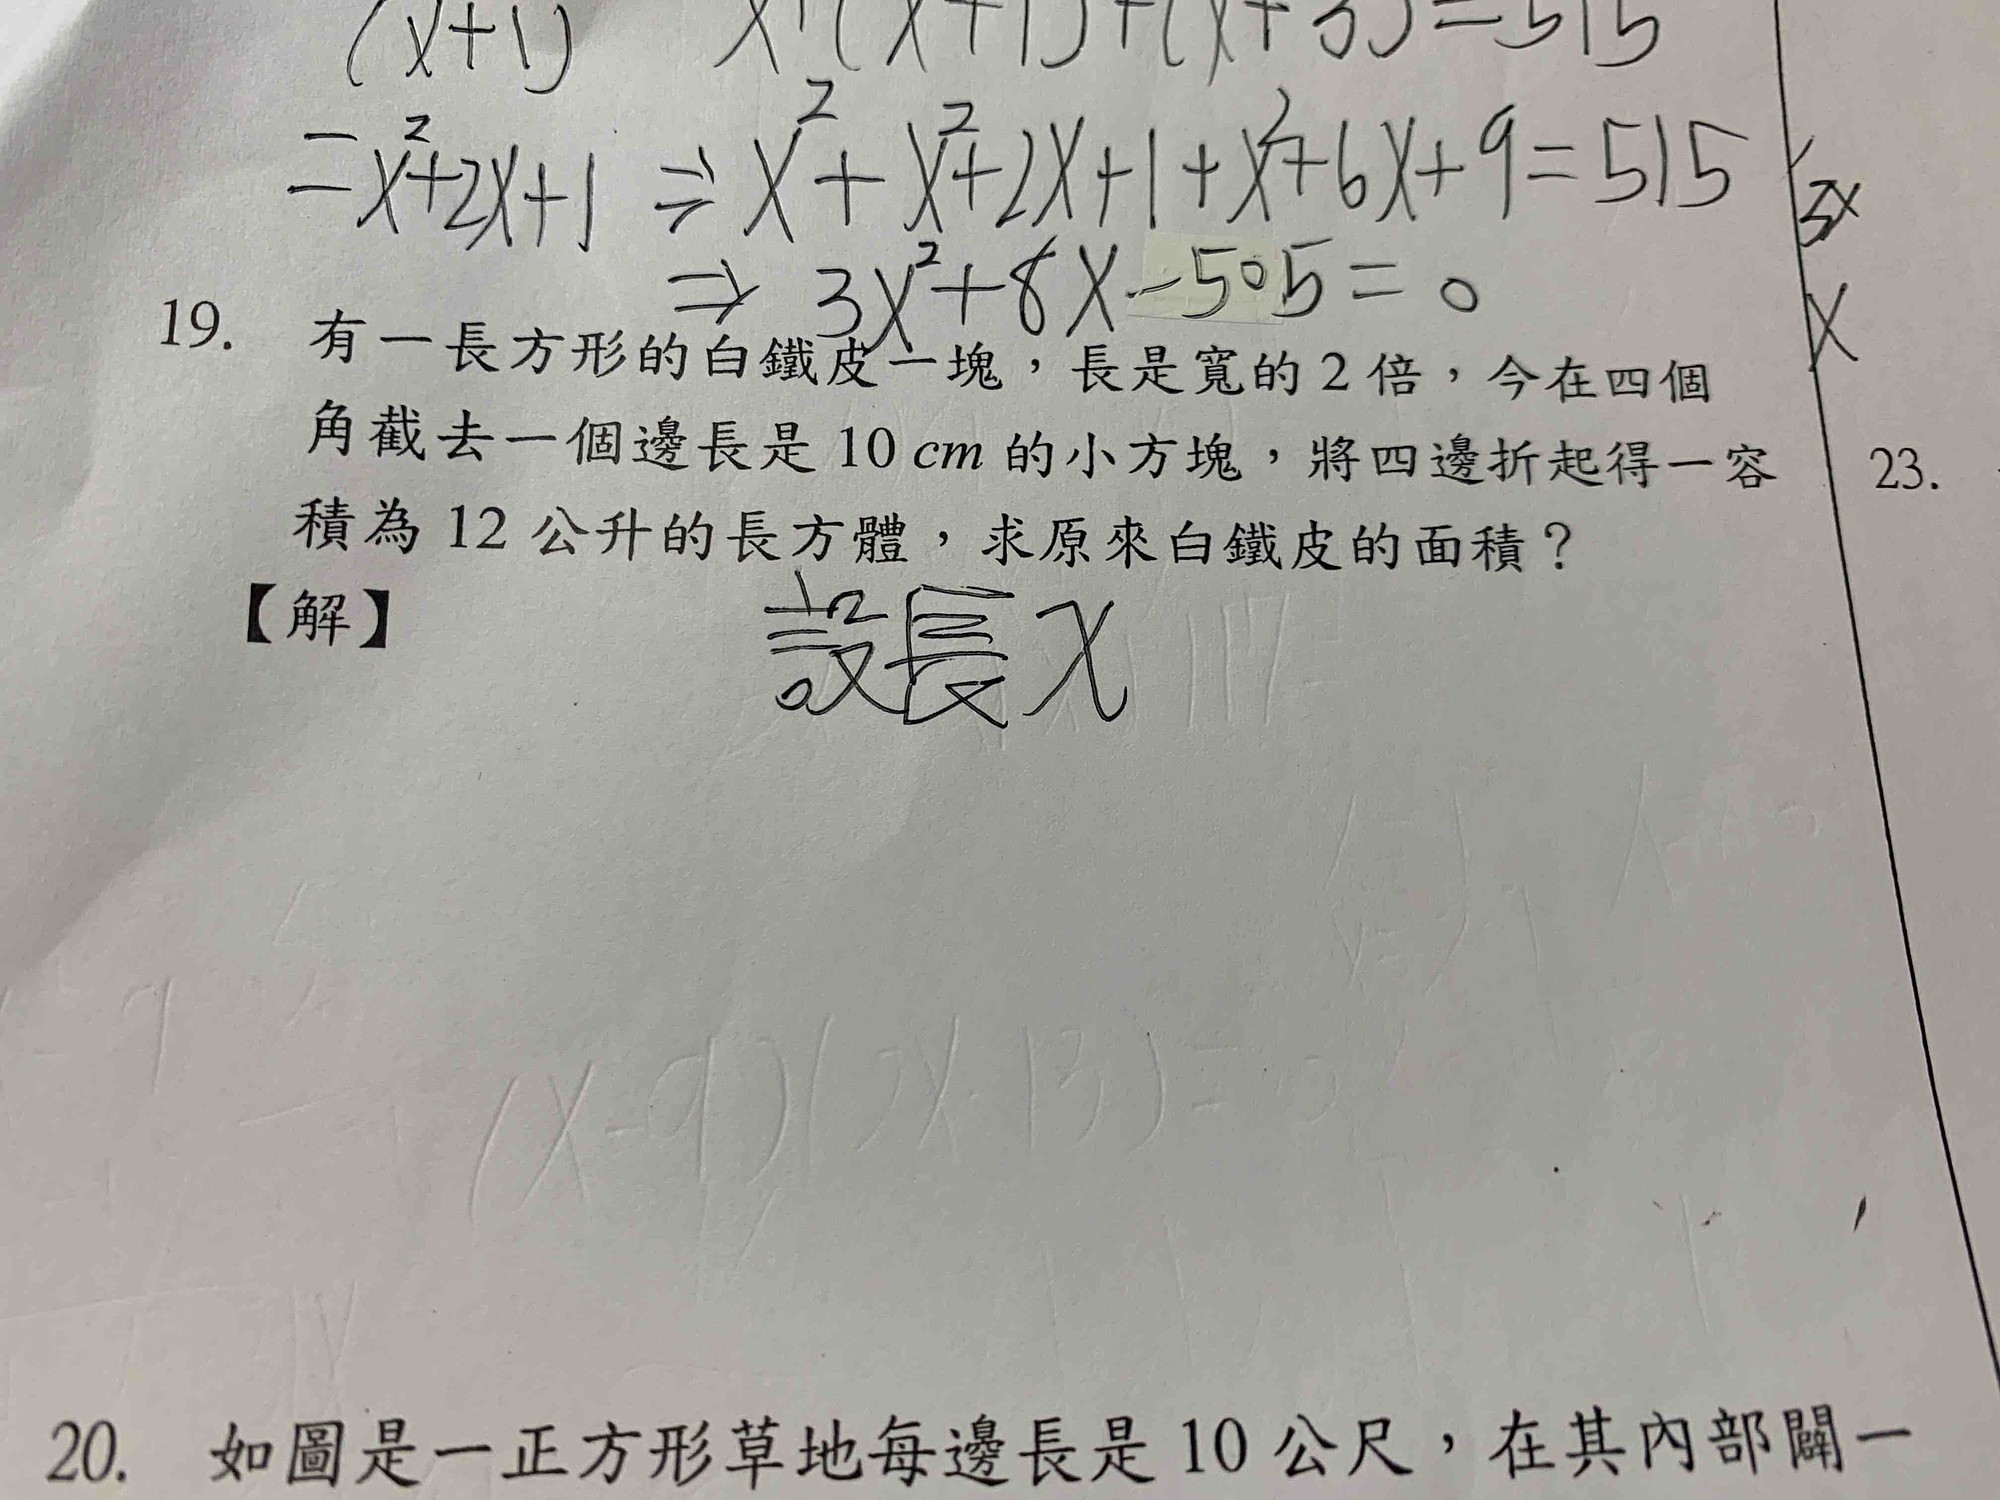 (x+1)
=x²+2x+1 ⇒ x²+x²+2x+1+x²+6x+9=515
3x
⇒ 3x²+8x-505=0
x
19. 有一長方形的白鐵皮一塊，長是寬的2倍，今在四個
角截去一個邊長是10 cm 的小方塊，將四邊折起得一容
積為12公升的長方體，求原來白鐵皮的面積？
23.
【解】
設長x
20. 如圖是一正方形草地每邊長是10公尺，在其內部闢一